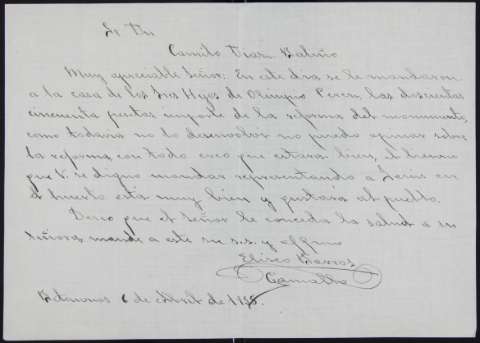 Sr Dn
Camilo Diaz Baliño
Muy apreciable Señor: En este dia se le mandaron
a la casa de los Sres Hijos de Olimpio Perez, las doscientas
cincuenta pesetas importe de la reforma del monumento,
como todavia no lo desenvolvi no puedo opinar sobre
la reforma, con todo creo que estará bien, el lienzo
que V. se digno mandar representando a Jesus en
el huerto está muy bien y gustará al pueblo.
Deseo que el señor le conceda la salud a su
señora, mande a este su s.s. y affmo
Eliseo Barros
Camalho
6 de Abril de